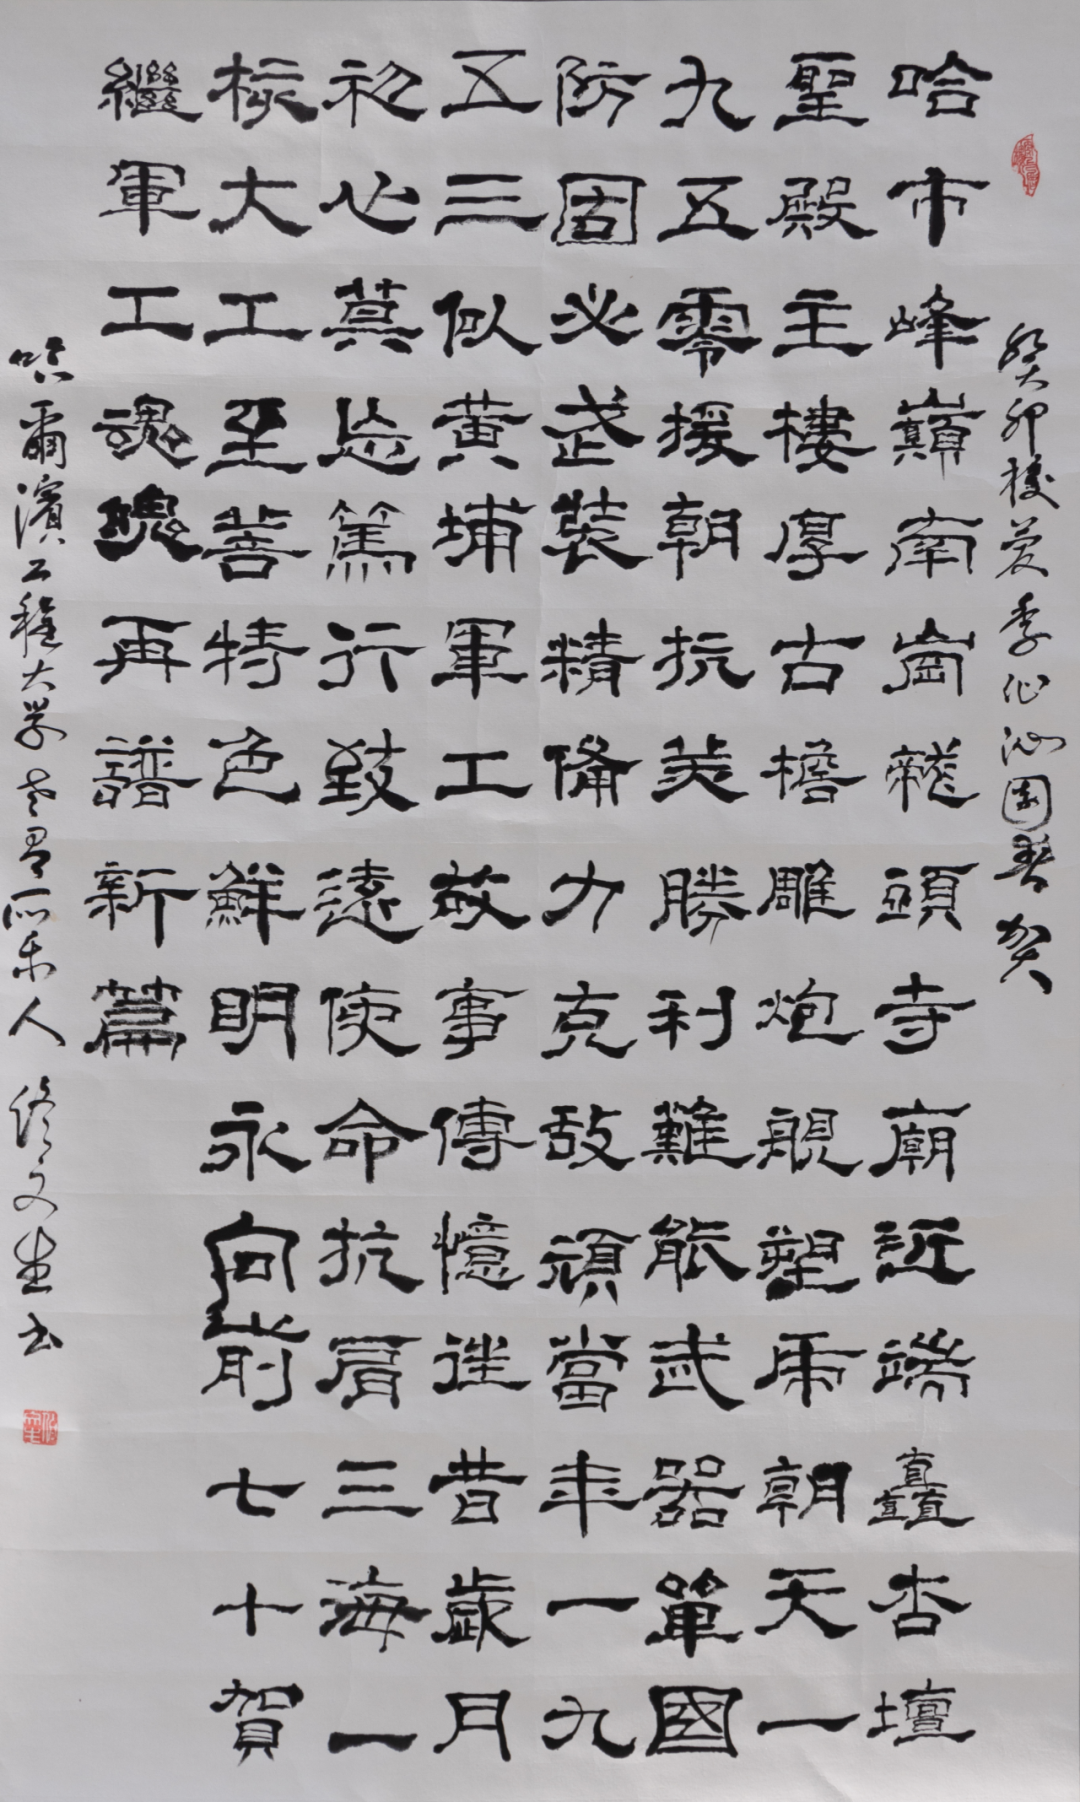 癸卯校慶季作沁園春賀
哈市峰巔南崗龍頭寺廟近端矗杏壇
聖殿主樓厚古檐雕炮艦塑虎朝天一
九五零援朝抗美勝利難能武器單國
防固必武裝精備力克敵頑當年一九
五三似黃埔軍工故事傳憶往昔歲月
初心莫忘篤行致遠使命抗肩三海一
核大工至善特色鮮明永向前七十賀
繼軍工魂魄再譜新篇
哈爾濱工程大学老有所樂人 文生书